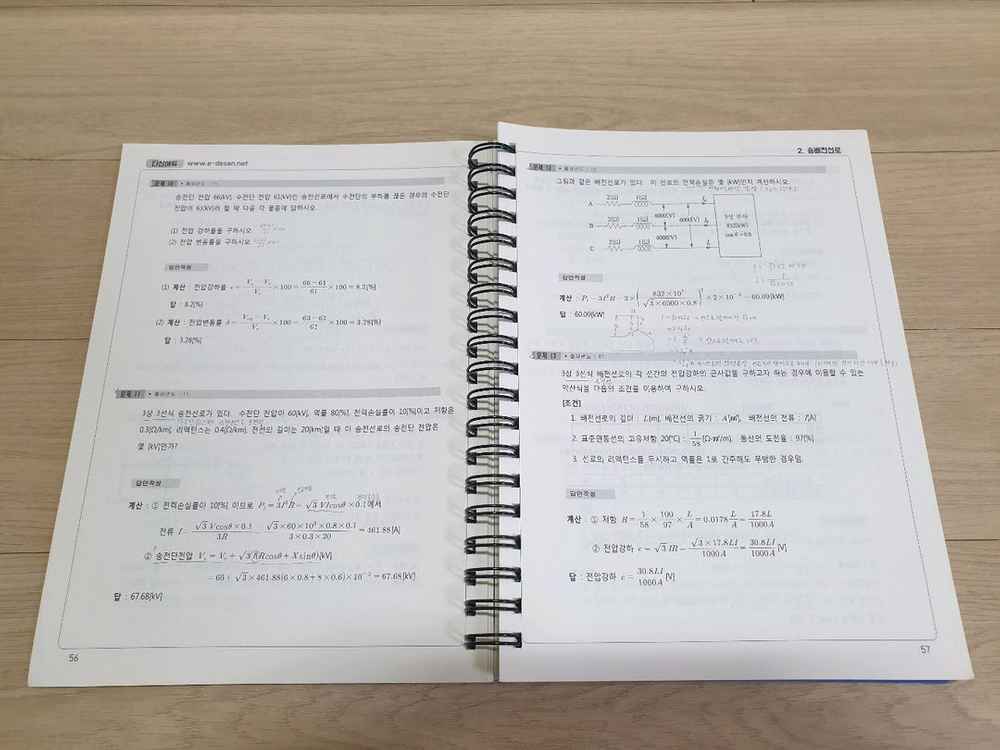 다산에듀 www.e-dasan.net
문제 10 • 출제년도
송전단 전압 66[kV], 수전단 전압 61[kV]인 송전선로에서 수전단의 부하를 끊은 경우의 수전단
전압이 63[kV]라 할 때 다음 각 물음에 답하시오.
(1) 전압 강하율을 구하시오.
(2) 전압 변동률을 구하시오.
답안작성
(1) 계산 : 전압강하율 ε = (Vs - Vr)/Vr ×100 = (66-61)/61 ×100 = 8.2[%]
답 : 8.2[%]
(2) 계산 : 전압변동률 δ = (Vr0 - Vr)/Vr ×100 = (63-61)/61 ×100 = 3.28[%]
답 : 3.28[%]
문제 11 • 출제년도
3상 3선식 송전선로가 있다. 수전단 전압이 60[kV], 역률 80[%], 전력손실률이 10[%]이고 저항은
0.3[Ω/km], 리액턴스는 0.4[Ω/km], 전선의 길이는 20[km]일 때 이 송전선로의 송전단 전압은
몇 [kV]인가?
답안작성
계산 : ① 전력손실률이 10[%] 이므로 Pl = 3I²R = √3 VIcosθ × 0.1에서
전류 I = (√3 Vcosθ×0.1)/3R = (√3×60×10³×0.8×0.1)/(3×0.3×20) = 461.88[A]
② 송전단전압 Vs = Vr + √3 I(Rcosθ + Xsinθ)[kV]
= 60 + √3×461.88(6×0.8+8×0.6)×10⁻³ = 67.68[kV]
답 : 67.68[kV]
56
2. 송배전선로
문제 12 • 출제년도
그림과 같은 배전선로가 있다. 이 선로의 전력손실은 몇 [kW]인지 계산하시오.
A 2[Ω] 1[Ω]
6000[V]
B 2[Ω] 1[Ω]
6000[V]
C 2[Ω] 1[Ω]
3상 부하
832[kW]
cosθ=0.8
답안작성
계산 : Pl = 3I²R = 3×(832×10³/(√3×6000×0.8))²×2×10⁻³ = 60.09[kW]
답 : 60.09[kW]
문제 13 • 출제년도
3상 3선식 배전선로의 각 선간의 전압강하의 근사값을 구하고자 하는 경우에 이용할 수 있는
약산식을 다음의 조건을 이용하여 구하시오.
[조건]
1. 배전선로의 길이 : L[m], 배전선의 굵기 : A[㎟], 배전선의 전류 : I[A]
2. 표준연동선의 고유저항 20[℃] : 1/58 [Ω·㎟/m], 동선의 도전율 : 97[%]
3. 선로의 리액턴스를 무시하고 역률은 1로 간주해도 무방한 경우임.
답안작성
계산 : ① 저항 R = 1/58 × 100/97 × L/A = 0.0178 L/A = 17.8L/1000A
② 전압강하 e = √3 IR = (√3×17.8LI)/1000A = 30.8LI/1000A [V]
답 : 전압강하 e = 30.8LI/1000A [V]
57